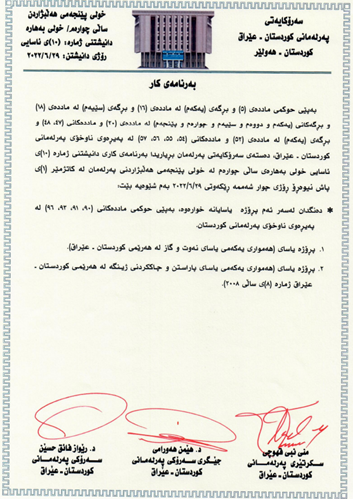 سەرۆکایەتی
پەرلەمانی کوردستان - عێراق
کوردستان - هەولێر
خولی پێنجەمی هەڵبژاردن
ساڵی چوارەم/ خولی بەهارە
دانیشتنی ژمارە: (١٠)ی ئاسایی
ڕۆژی دانیشتن: ٢٠٢٢/٦/٢٩
بەرنامەی کار
بەپێی حوکمی ماددەی (٥) و بڕگەی (یەکەم) لە ماددەی (١٦) و بڕگەی (سێیەم) لە ماددەی (١٨)
و بڕگەکانی (یەکەم و دووەم و سێیەم و چوارەم و پێنجەم) لە ماددەی (٢٠) و ماددەکانی (٢٧، ٤٨) و
بڕگەی (یەکەم) لە ماددەی (٥٢) و ماددەکانی (٥٤، ٥٥، ٥٦، ٥٧) لە پەیڕەوی ناوخۆی پەرلەمانی
کوردستان - عێراق، دەستەی سەرۆکایەتی پەرلەمان بڕیاریدا بەرنامەی کاری دانیشتنی ژمارە (١٠)ی
ئاسایی خولی بەهارەی ساڵی چوارەم لە خولی پێنجەمی هەڵبژاردنی پەرلەمان لە کاتژمێر (١)ی
پاش نیوەڕۆ ڕۆژی چوار شەممە ڕێکەوتی ٢٠٢٢/٦/٢٩ بەم شێوەیە بێت:
* دەنگدان لەسەر ئەم پڕۆژە یاسایانە خوارەوە، بەپێی حوکمی ماددەکانی (٩٠، ٩١، ٩٣، ٩٦) لە
پەیڕەوی ناوخۆی پەرلەمانی کوردستان.
١. پڕۆژە یاسای (هەمواری یەکەمی یاسای نەوت و گاز لە هەرێمی کوردستان - عێراق).
٢. پڕۆژە یاسای (هەمواری یەکەمی یاسای پاراستن و چاککردنی ژینگە لە هەرێمی کوردستان -
عێراق ژمارە (٨)ی ساڵی ٢٠٠٨).
منی نبی قهوچی
سکرتێری پەرلەمانی
کوردستان - عێراق
د. هێمن هەورامی
جێگری سەرۆکی پەرلەمانی
کوردستان - عێراق
د. ڕێواز فائق حسێن
سەرۆکی پەرلەمانی
کوردستان - عێراق